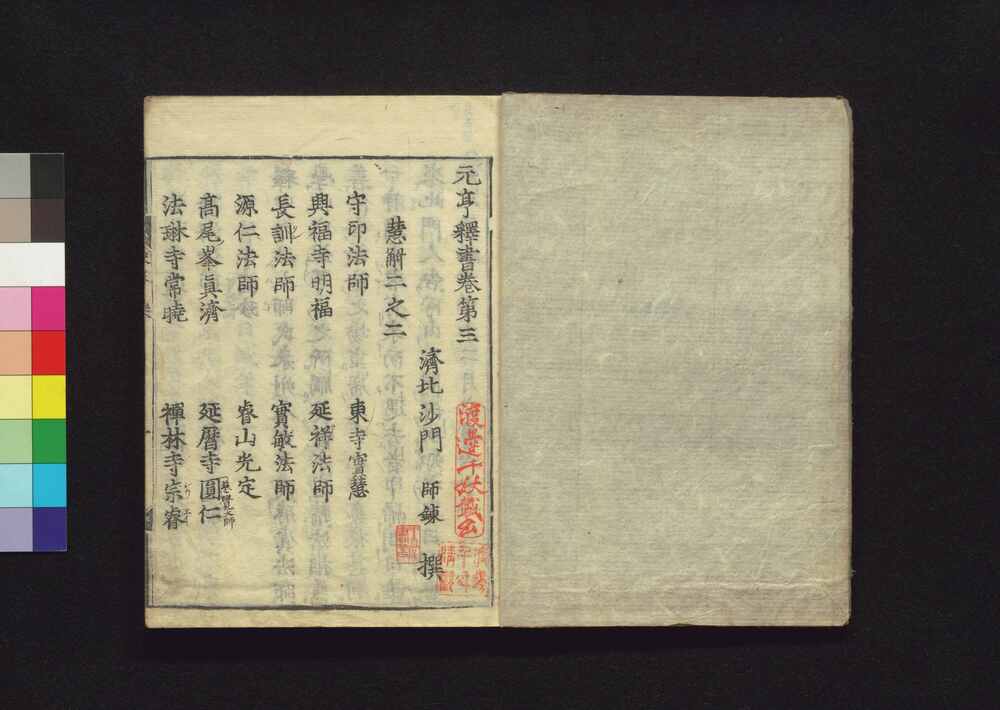 元亨釋書卷第三
濟北沙門 師錬 撰
慧解二之二
守印法師 東寺實慧
興福寺明福 延祥法師
長訓法師 實敏法師
源仁法師 睿山光定
髙尾峯眞濟 延暦寺圓仁
慈覺大師
法琳寺常曉 禪林寺宗睿
渡邊千秋蔵書